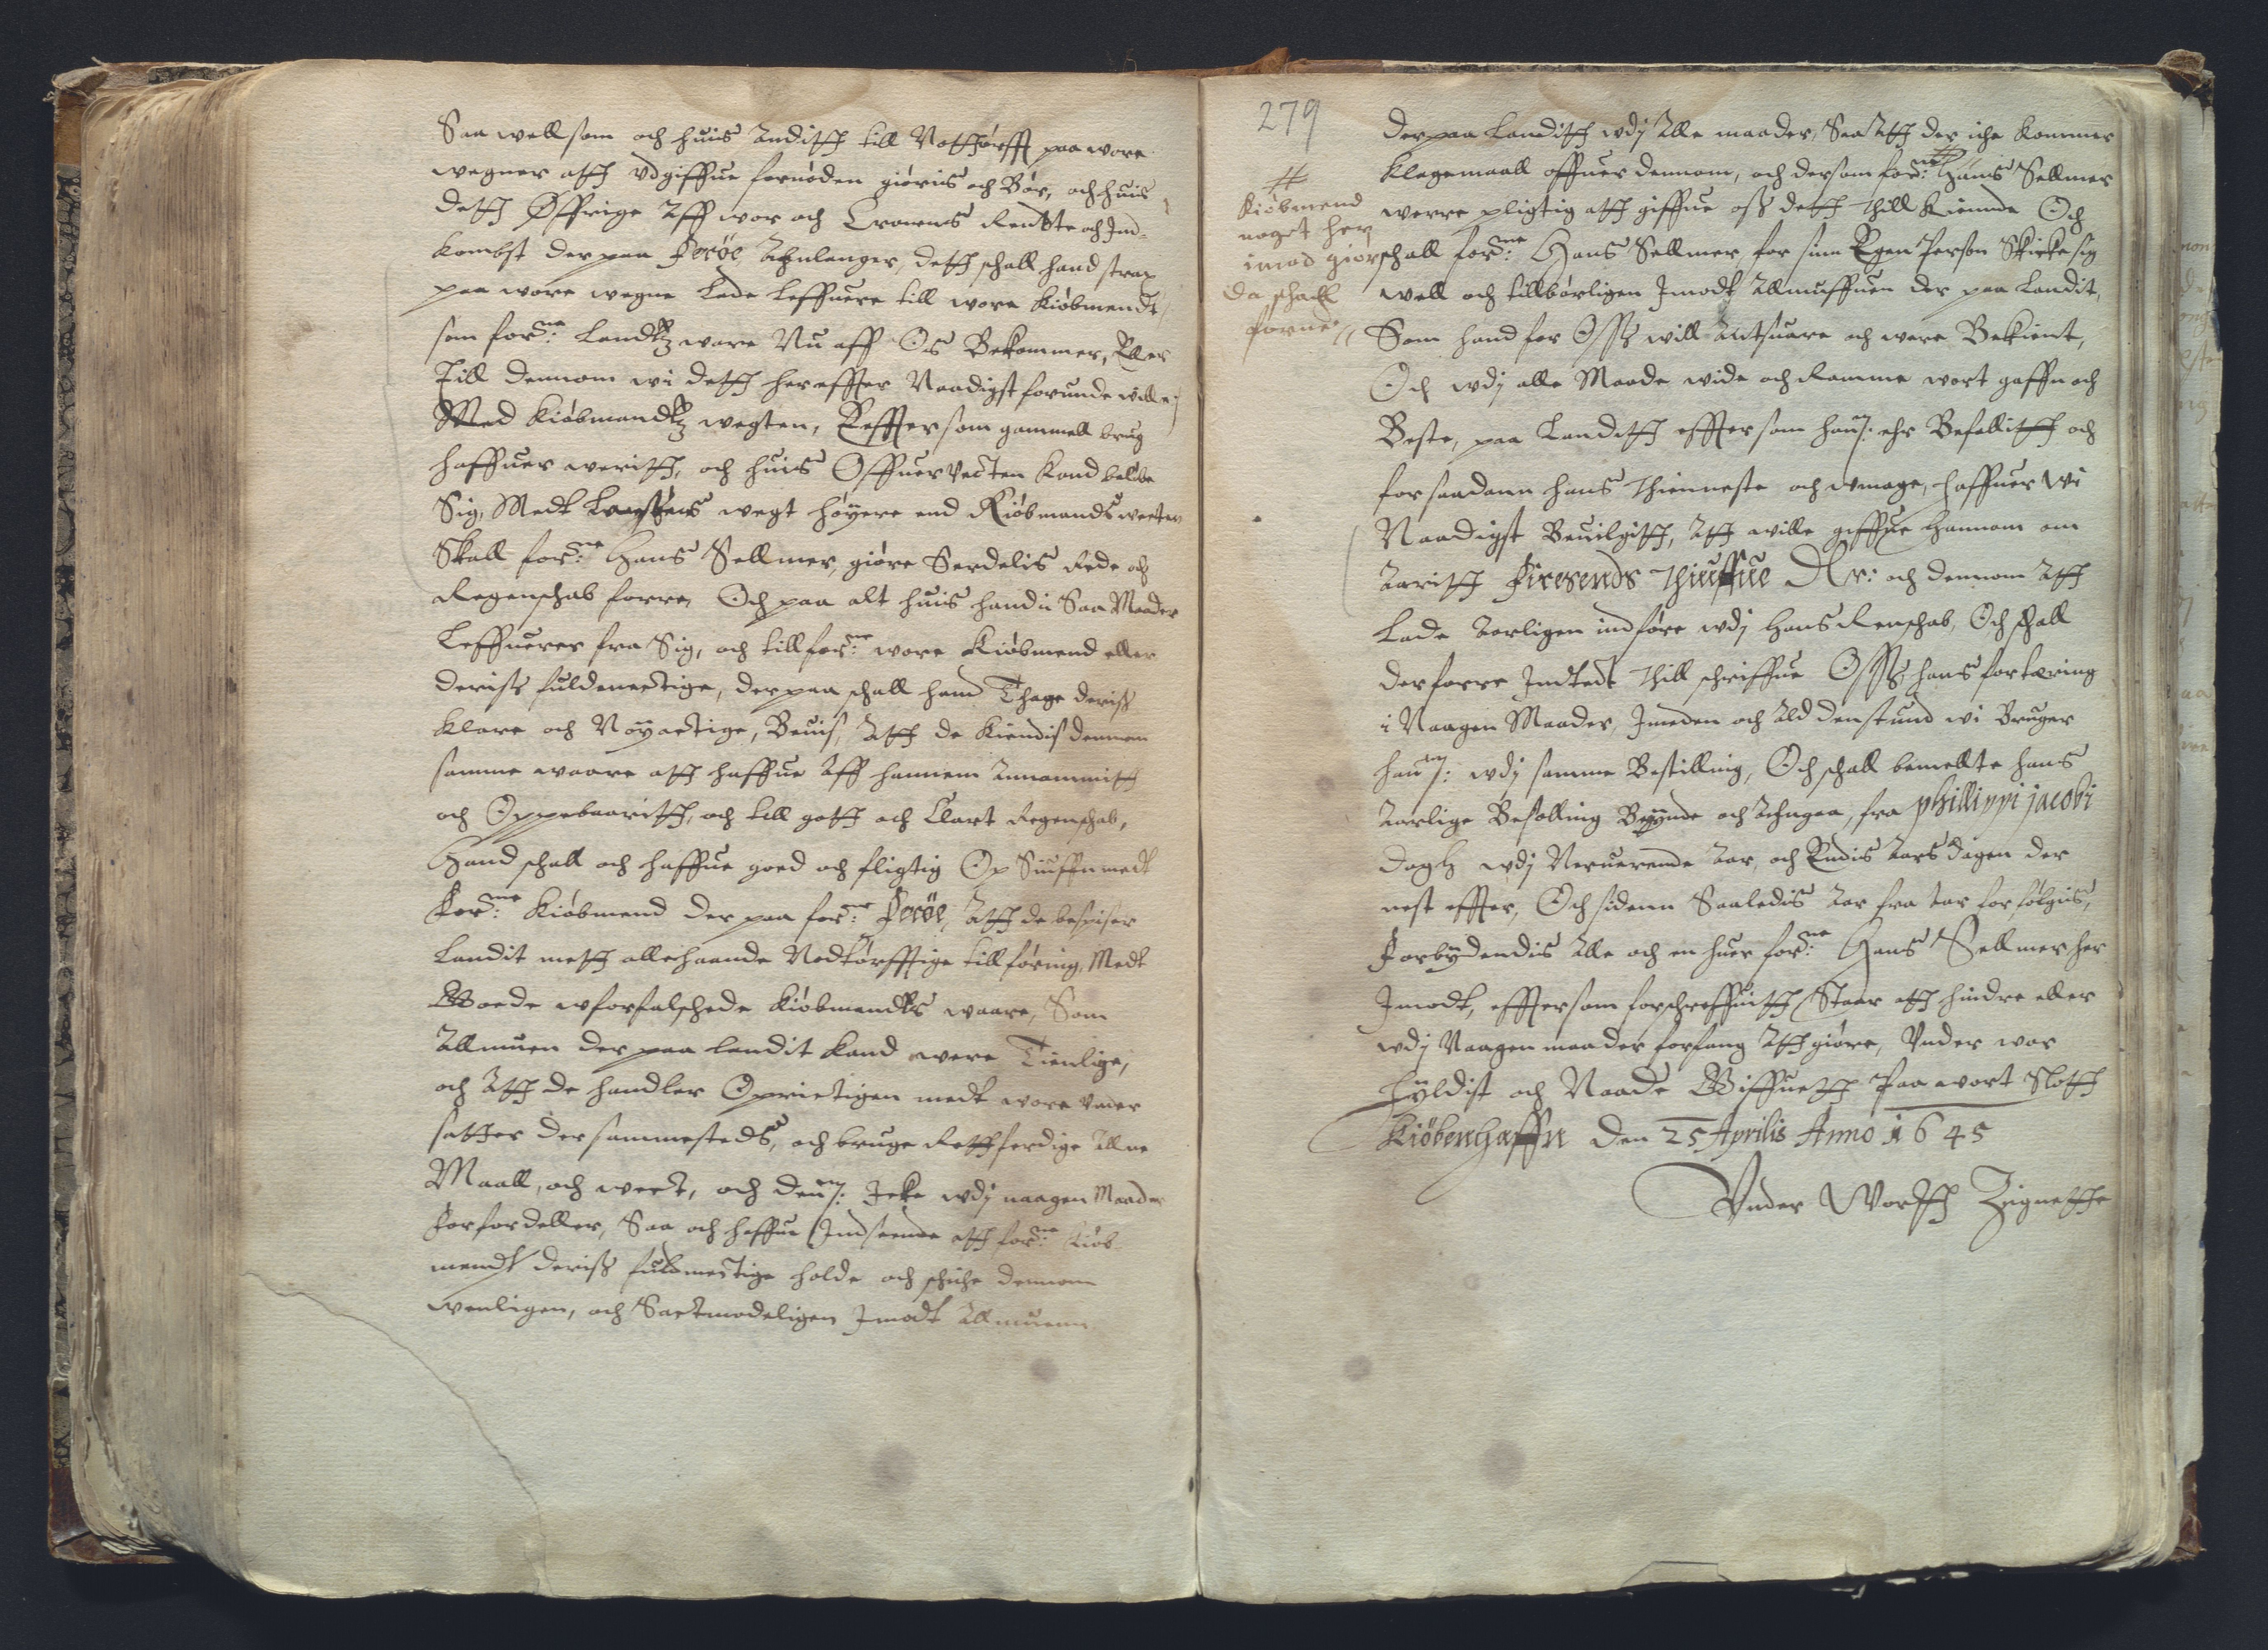 Saa well som och huis Anditth till Nothørfft paa wore
wegner atth vdgiffue fornøden giøris och Bør, och huis
detth Øffrige Aff wor och Cronens Rentte och Ind-
kombst der paa Ferøe Ahnlanger, detth schall hand strax
paa wore wegne Lade leffuere till wore Kiøbmendt,
som for:ne Landtz ware Nu aff Os Bekommer, Eller
Till dennom wi detth hereffter Naadigst forunde wille,
Med Kiøbmandtz wegten, Eeffter som gammell brug
haffuer weritth, och huis Offuer Vecten Kand beløbe
Sig, Medt wegt høyere end Kiøbmands wecten
Skall for:ne Hans Sellmer, giøre Serdelis Rede och
Regenschab forre, Och paa alt huis hand ii Saa Maader
Leffuerer fra Sig, och till for:ne wore Kiøbmend eller
deriss fuldmectige, der paa schall hand Thage deriss
klare och Nøyactige, Beuis, Atth de Kiendis dennom
samme waare atth haffue Aff hannem Annammitth
och Oppebaaritth, och till gott och Klart Regenschab,
Hand schall och haffue goed och fligtig Op Siuffn medt
For:ne Kiøbmend der paa for:ne Ferøe, Atth de bespiser
Landit meth allehaande Nodtørfftige tillføring, Medt
Goede wforfalschede Kiøbmandts waare, Som
Allmuen der paa landit kand were Tienlige,
och Atth de handler Oprictigen medt wore vnder
satter der sammesteds, och bruge Rettferdige Allne
Maall, och wect, och den:m Icke wdj naagen Maader
Forfordeller, Saa och haffue Indseende atth for:ne Kiøb-
mendt deriss fuldmectige holde och schicke dennom
wenligen, och Sactmodeligen Imodt Allmuenn
279
der paa Landitth wdj Alle maader, Saa Atth der icke kommer
Klagemaall offuer dennom, och dersom for:ne # Hans Sellmer
# Kiøbmend
noget her
imod giør
da schall
forne
werre pligtig atth giffue oss detth Thill kiende Och
schall for:ne Hans Sellmer for sinn Egen Person Skicke sig
well och tillbørligen Imodt Allmuffuen der paa Landit,
Som hand for Oss will Antsuare och were Bekient,
Och wdj alle Maade wide och Ramme wort gaffn och
Beste, paa Landitth effter som han:m ehr Befallitth och
for saadann hans Thienneste och wmage, haffuer wi
Naadigst Beuilgitth, Atth wille giffue hannom om
Aaritth Firesends Thiuffue Dlr: och dennom Atth
Lade Aarligen indføre wdj hans Renschab, Och schall
der forre Indtedt Thill schriffue Oss, hans fortæring
i Naagen Maader, Imeden och Ald den stund wi Bruger
han:m wdj samme Bestilling, Och schall bemellte hans
Aarlige Besolling Begynde och Ahngaa, fra phillippi jacobi
dagh wdj Neruerende Aar, och Endis Aars dagen der
nest effter, Och sidenn Saaledis Aar fra Aar forfølgis,
Forbydendis Alle och en huer for:ne Hans Sellmer her
Imodt, effter som forschreffuitth Staar atth hindre eller
wdj Naagen maader forfang Atth giøre, Vnder wor
Hyldist och Naade Giffuett Paa wort Slott
Kiøbenhaffn den 25 Aprilis Anno 1645
Vnder Wortth Zignethe